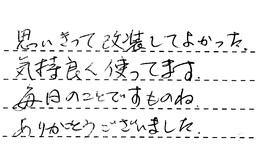 思いきって改装してよかった。
気持良く使ってます。
毎日のことですものね
ありがとうございました。